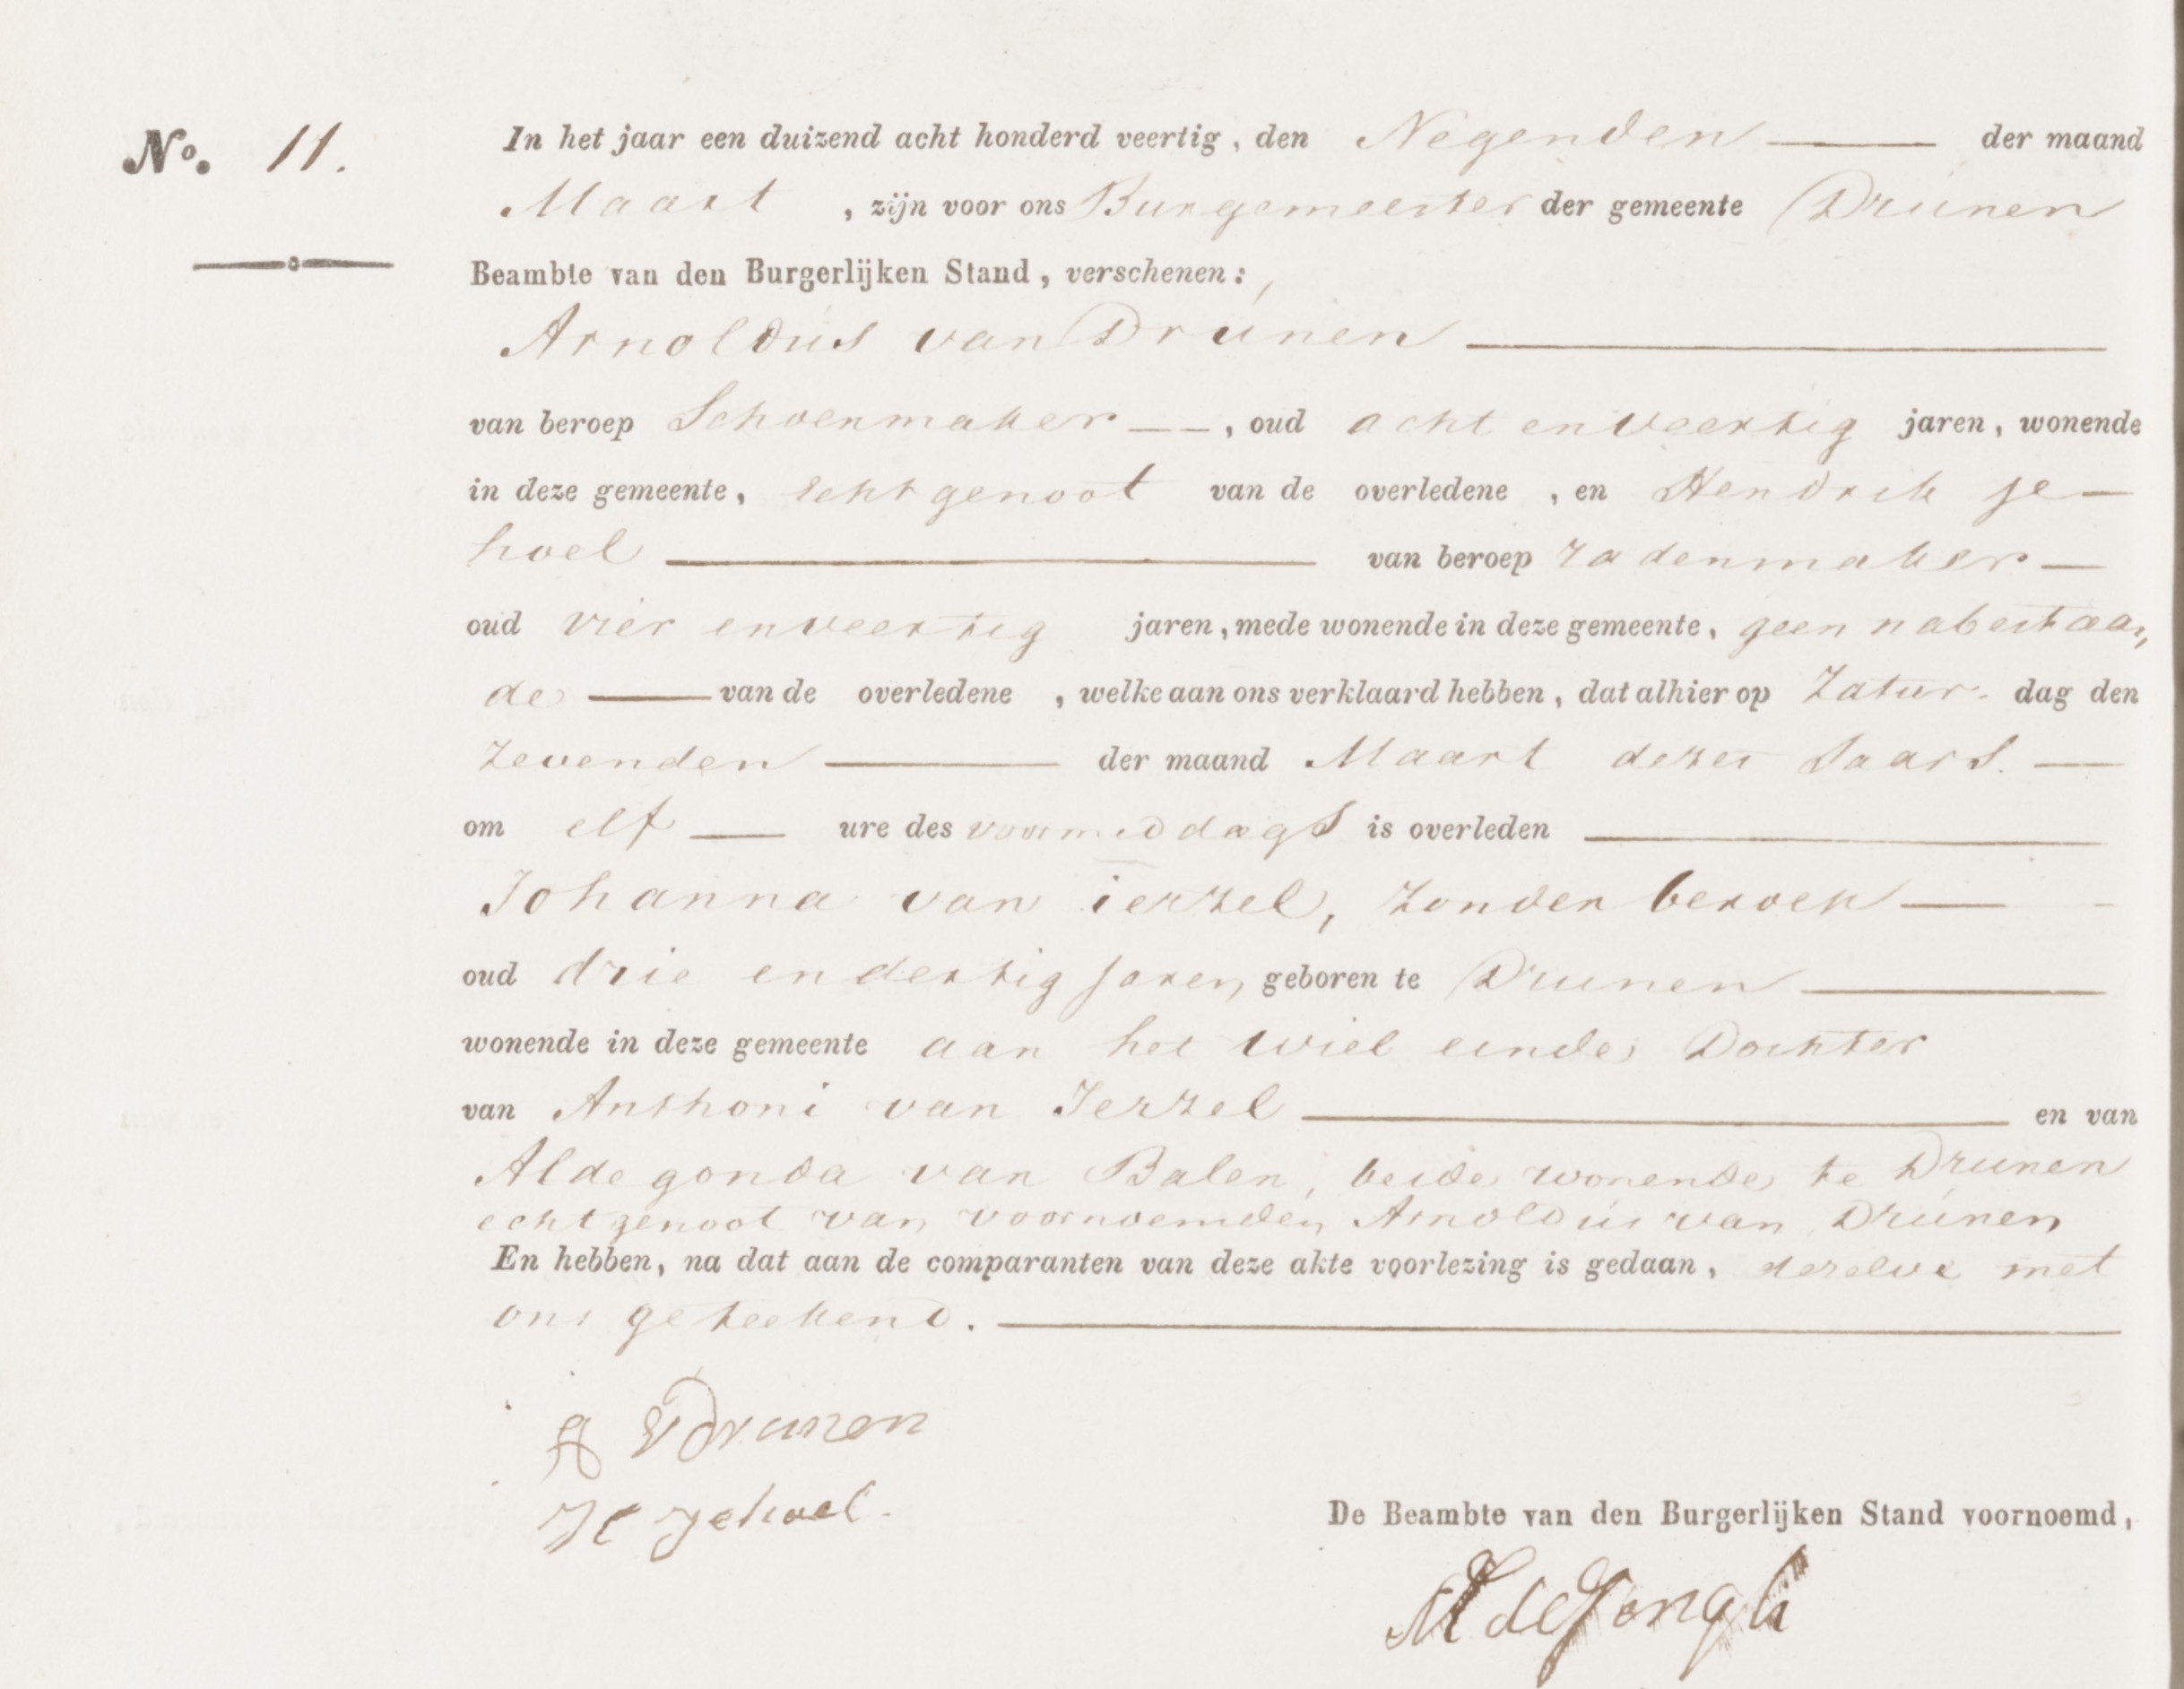 No. 11.
In het jaar een duizend acht honderd veertig, den Negenden der maand
Maart, zijn voor ons Burgemeester der gemeente Drúnen
Beambte van den Burgerlijken Stand, verschenen:
Arnoldús van Drúnen
van beroep Schoenmaker, oud acht en veertig jaren, wonende
in deze gemeente, echtgenoot van de overledene, en Hendrik je-
hoel van beroep radenmaker
oud vier en veertig jaren, mede wonende in deze gemeente, geen nabestaan,
de van de overledene, welke aan ons verklaard hebben, dat alhier op Zatur. dag den
Zevenden der maand Maart dezes Jaars.
om elf ure des voormiddags is overleden
Johanna van ierzel, zonder beroep
oud drie en dertig jaren geboren te Drunen
wonende in deze gemeente aan het wiel einde, Dochter
van Anthoni van Ierzel en van
Aldegonda van Balen, beide wonende te Drunen
echtgenoot van voornoemden Arnoldús van Drúnen
En hebben, na dat aan de comparanten van deze akte voorlezing is gedaan, dezelve met
ons geteekend.
A V Drunen
H jehoel.
De Beambte van den Burgerlijken Stand voornoemd,
de Jongh